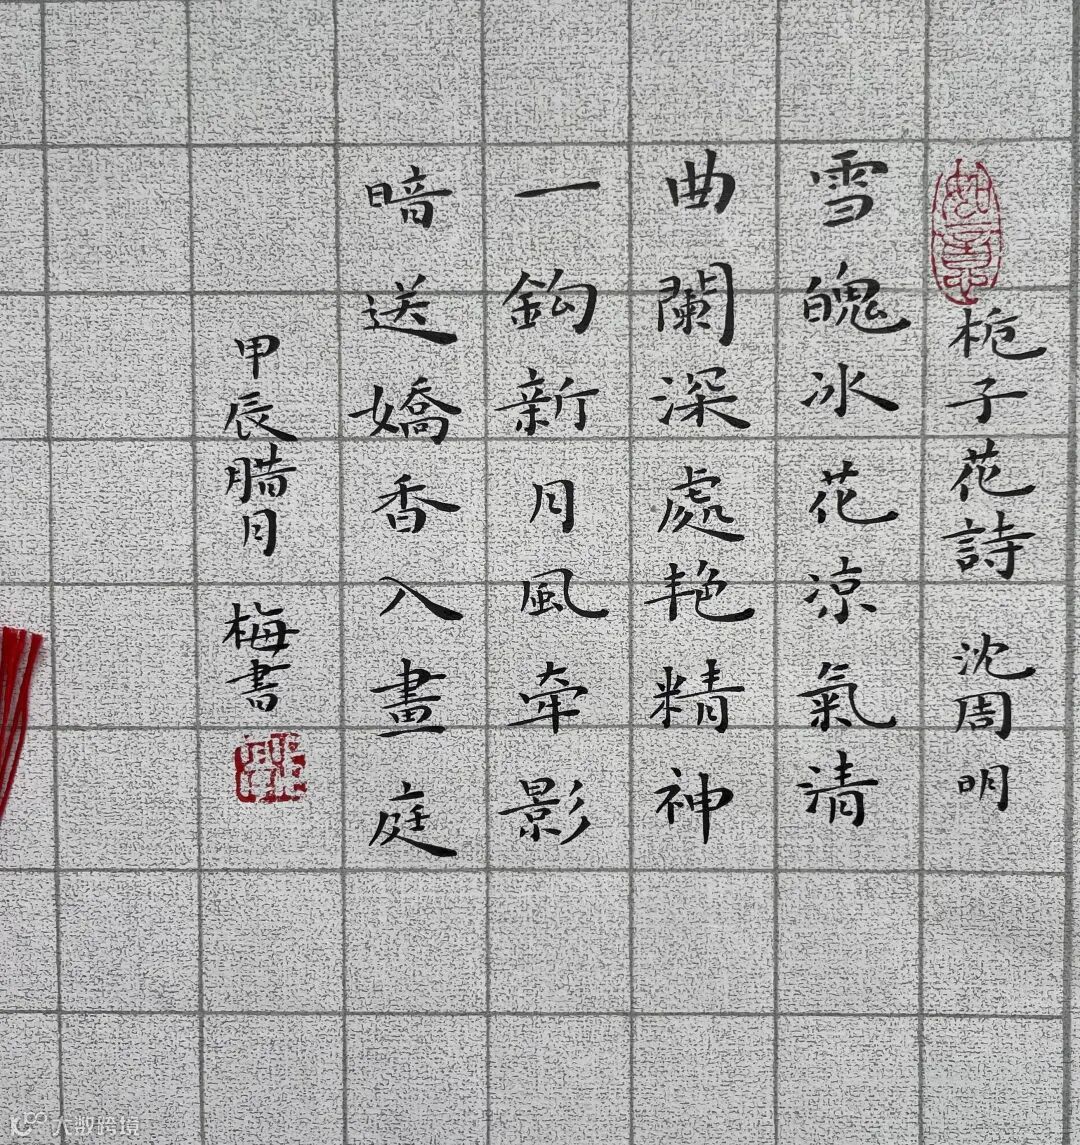 栀子花詩 沈周 明
雪魄冰花凉氣清
曲闌深處艳精神
一鈎新月風牽影
暗送嬌香入畫庭
甲辰腊月 梅書
大数跨境